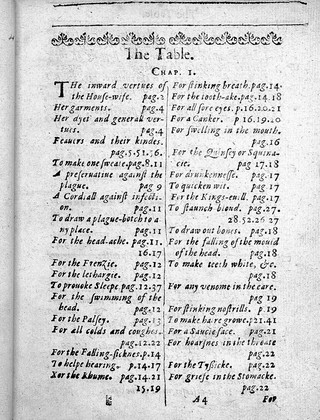 The Table.
CHAP. I.
THe inward vertues of
the House-wife. pag.2
Her garments. pag.4
Her dyet and generall ver-
tues. pag.4
Feavers and their kindes.
pag.5.51.56.
To make one sweate.pag.8.11
A preservative against the
plague. pag 9
A Cordiall against infecti-
on. pag.11
To draw a plague-botch to a-
ny place. pag.11
For the head-ache. pag.11.
16.17
For the Frenzie. pag.12
For the lethargie. pag.12
To provoke Sleepe.pag.12.37
For the swimming of the
head. pag.12
For the Palsey. pag.13
For all colds and coughes.
pag.12.22
For the Falling-sicknes.p.14
To helpe hearing. p.14.17
For the Rhume. pag.14.21
15.19
For stinking breath.pag.14.
For the tooth-ake.pag.14.18
For all sore eyes. p.16.20.21
For a Canker. p 16.19.20
For swelling in the mouth.
pag.16
For the Quinsey or Squina-
cie. pag 17.18
For drunkennesse. pag.17
To quicken wit. pag.17
For the Kings-evill. pag.17
To staunch bloud. pag.27.
28.52.26 27
To draw out bones. pag.18
For the falling of the mould
of the head. pag.18
To make teeth white, &c.
pag.18
For any venome in the eare.
pag 19
For stinking nostrills. p.19
To make haire grow.p21.41
For a Saucie face. pag.21
For hoarsnes in the throate
pag.22
For the Tyssicke. pag.22
For griefe in the stomacke.
pag.22
A4 For